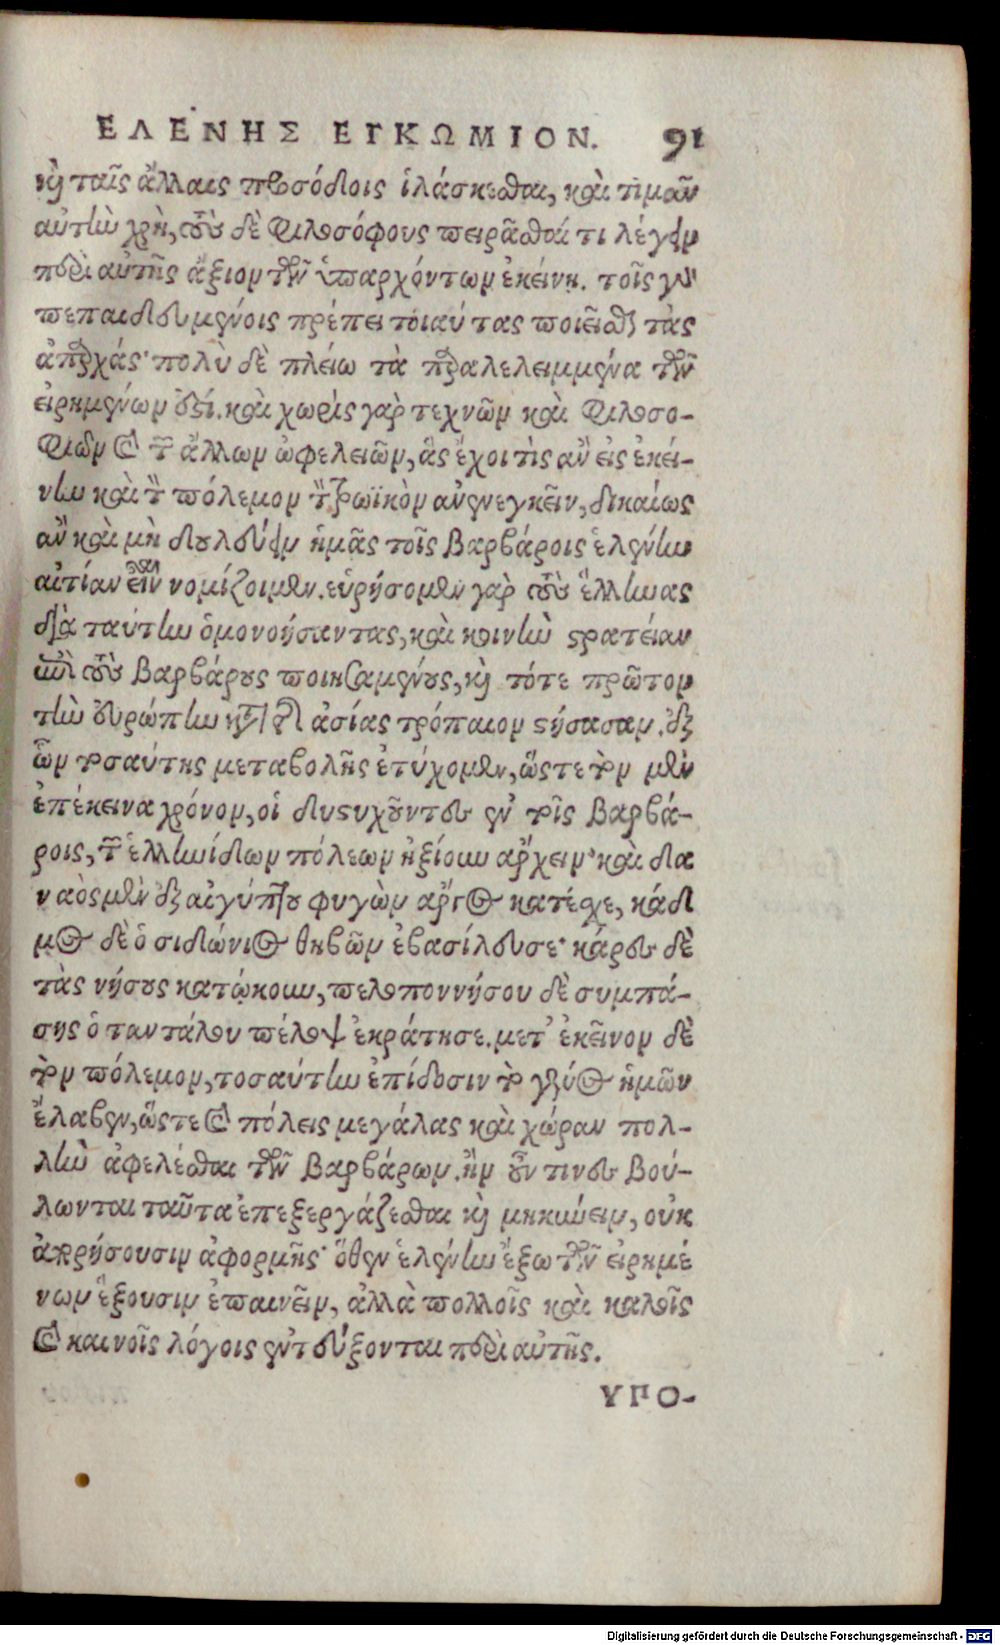 ΕΛΕΝΗΣ ΕΓΚΩΜΙΟΝ. 91
καὶ ταῖς ἄλλαις προσόδοις ἱλάσκεσθαι, καὶ τιμᾶν
αὐτὴν χρὴ, τοὺς δὲ φιλοσόφους πειρᾶσθαί τι λέγειν
περὶ αὐτῆς ἄξιον τῶν ὑπαρχόντων ἐκείνῃ. τοῖς γὰρ
πεπαιδευμένοις πρέπει τοιαύτας ποιεῖσθαι τὰς
ἀπαρχάς· πολὺ δὲ πλείω τὰ παραλελειμμένα τῶν
εἰρημένων ἐστί. καὶ χωρὶς γὰρ τεχνῶν καὶ φιλοσο-
φιῶν καὶ τῶν ἄλλων ὠφελειῶν, ἃς ἔχοι τὶς ἂν εἰς ἐκεί-
νην καὶ τὸν πόλεμον τὸν τρωϊκὸν ἀνενεγκεῖν, δικαίως
ἂν καὶ μὴ δουλεύειν ἡμᾶς τοῖς βαρβάροις ἑλένην
αἰτίαν εἶναι νομίζοιμεν. εὑρήσομεν γὰρ τοὺς ἕλληνας
διὰ ταύτην ὁμονοήσαντας, καὶ κοινὴν στρατείαν
ἐπὶ τοὺς βαρβάρους ποιησαμένους, καὶ τότε πρῶτον
τὴν εὐρώπην κατὰ τῆς ἀσίας τρόπαιον στήσασαν. ἐξ
ὧν τοσαύτης μεταβολῆς ἐτύχομεν, ὥστε τὸν μὲν
ἐπέκεινα χρόνον, οἱ δυστυχοῦντες ἐν τοῖς βαρβά-
ροις, τῶν ἑλληνίδων πόλεων ἠξίουν ἄρχειν· καὶ δα
ναὸς μὲν ἐξ αἰγύπτου φυγὼν ἄργος κατέσχε, κάδ
μος δὲ ὁ σιδώνιος θηβῶν ἐβασίλευσε· κάρες δὲ
τὰς νήσους κατῴκουν, πελοποννήσου δὲ συμπά-
σης ὁ ταντάλου πέλοψ ἐκράτησε. μετ' ἐκεῖνον δὲ
τὸν πόλεμον, τοσαύτην ἐπίδοσιν τὸ γένος ἡμῶν
ἔλαβεν, ὥστε καὶ πόλεις μεγάλας καὶ χώραν πολ-
λὴν ἀφελέσθαι τῶν βαρβάρων. ἢν οὖν τινες βού-
λωνται ταῦτα ἐπεξεργάζεσθαι καὶ μηκύνειν, οὐκ
ἀπορήσουσιν ἀφορμῆς· ὅθεν ἑλένην ἔξω τῶν εἰρημέ
νων ἕξουσιν ἐπαινεῖν, ἀλλὰ πολλοῖς καὶ καλοῖς
καὶ καινοῖς λόγοις ἐντεύξονται περὶ αὐτῆς.
ΥΠΟ-
Digitalisierung gefördert durch die Deutsche Forschungsgemeinschaft - DFG